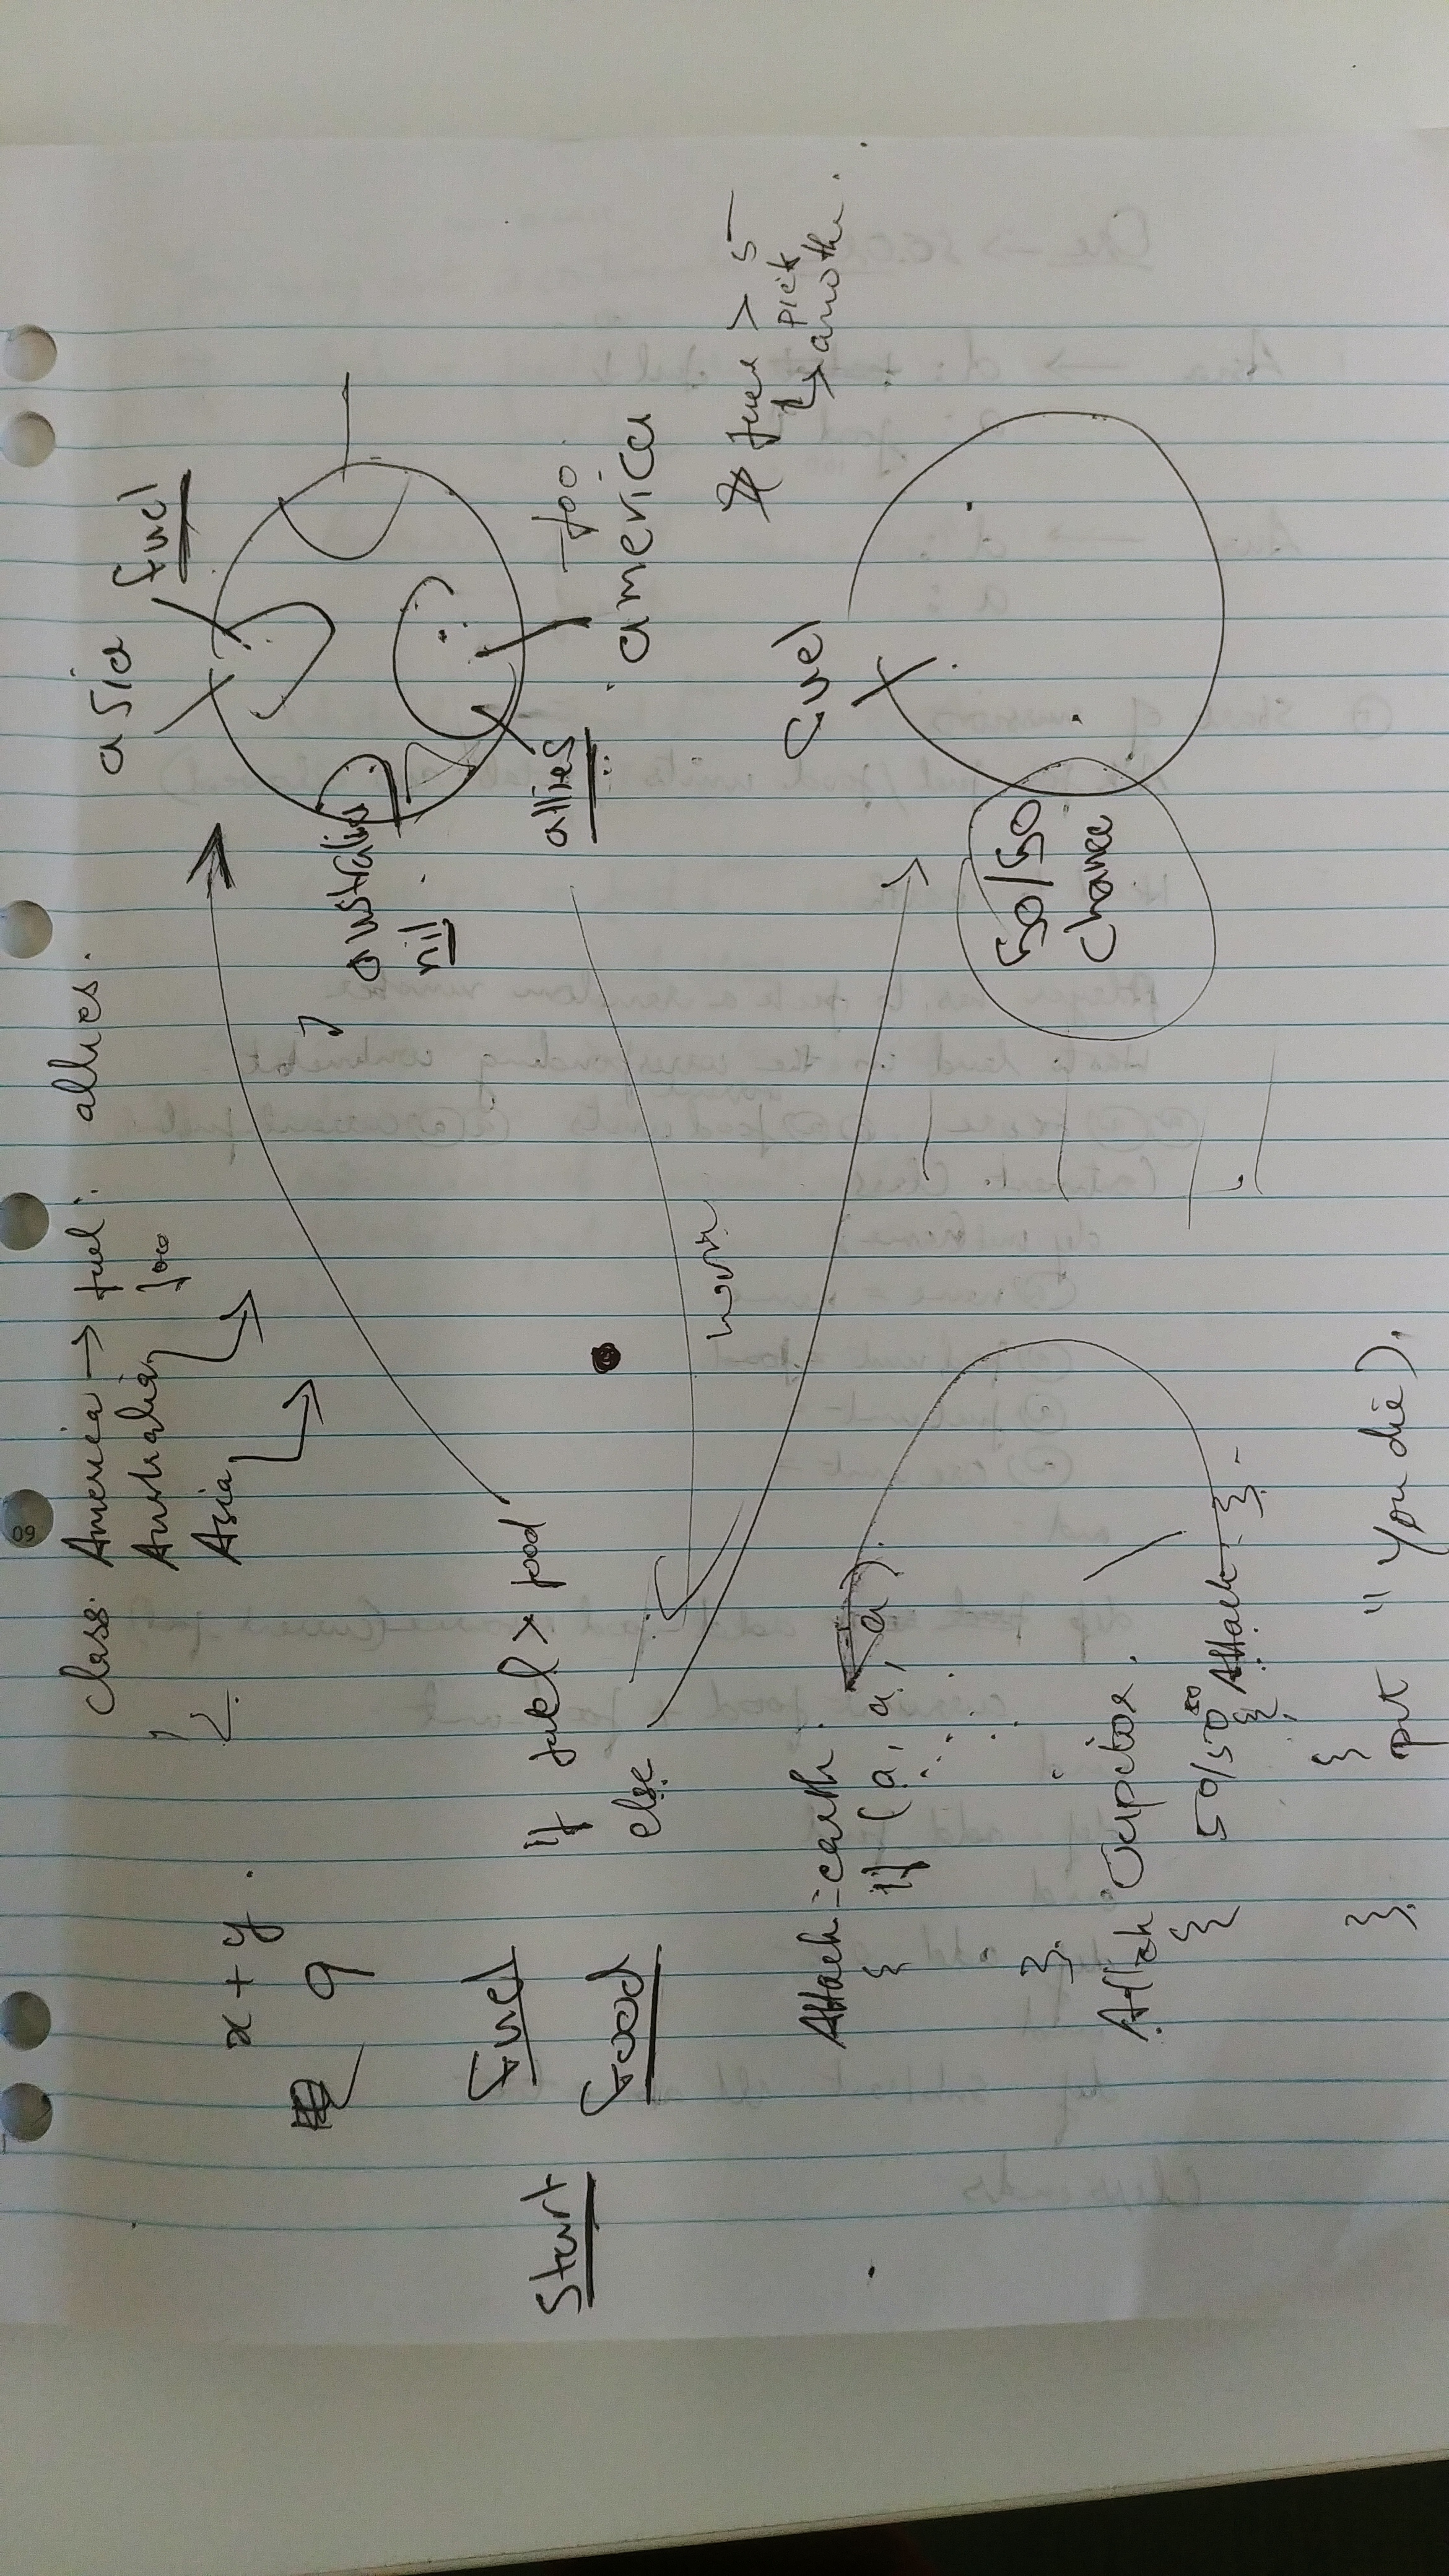 class: America → fuel: allies.
Australia foo
Asia
x + y.
9
Start
Fuel
Food
if fuel > food
else
asia
fuel
australia
nil
allies
foo
america
fuel > 5
↳ pick
another.
fuel
50/50
chance
Attack = earth.
{ if (a, a, a, a).
};
Attack Jupiter.
{ 50/50 Attack
}; put "You die),